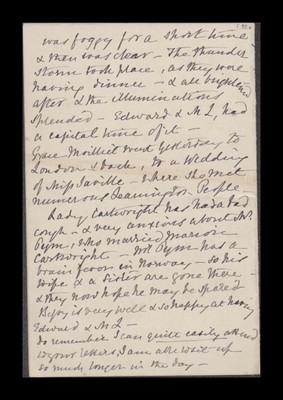 was foggy for a short time
& then was clear - The thunder
storm took place, as they were
having dinner - & all brightened
after & the illumination
splendid - Edward & M L, had
a capital time of it -
Grace Moilliet went yesterday to
London & back, to a Wedding
of Miss Saville - Where she met
numerous Leamington People
Lady Cartwright has had a bad
cough - & very anxious about Mr
Pym, who married Marion
Cartwright - Mr Pym has a
brain fever in Norway - so his
Wife & a Sister are gone there -
& they now hope he may be spared
is very well & so happy at having
Edward & M L -
do remember I can quite easily attend
to your letters, I am able to sit up
so much longer in the day -